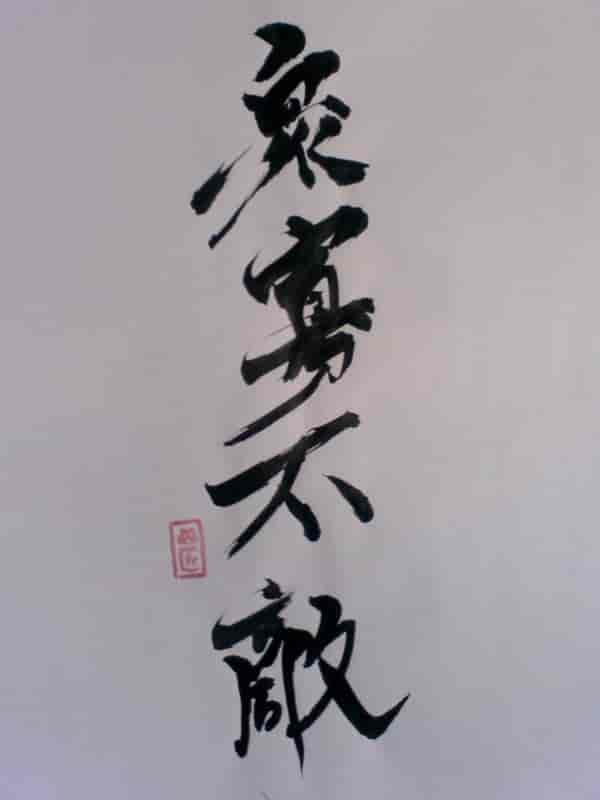 衆寡不敵